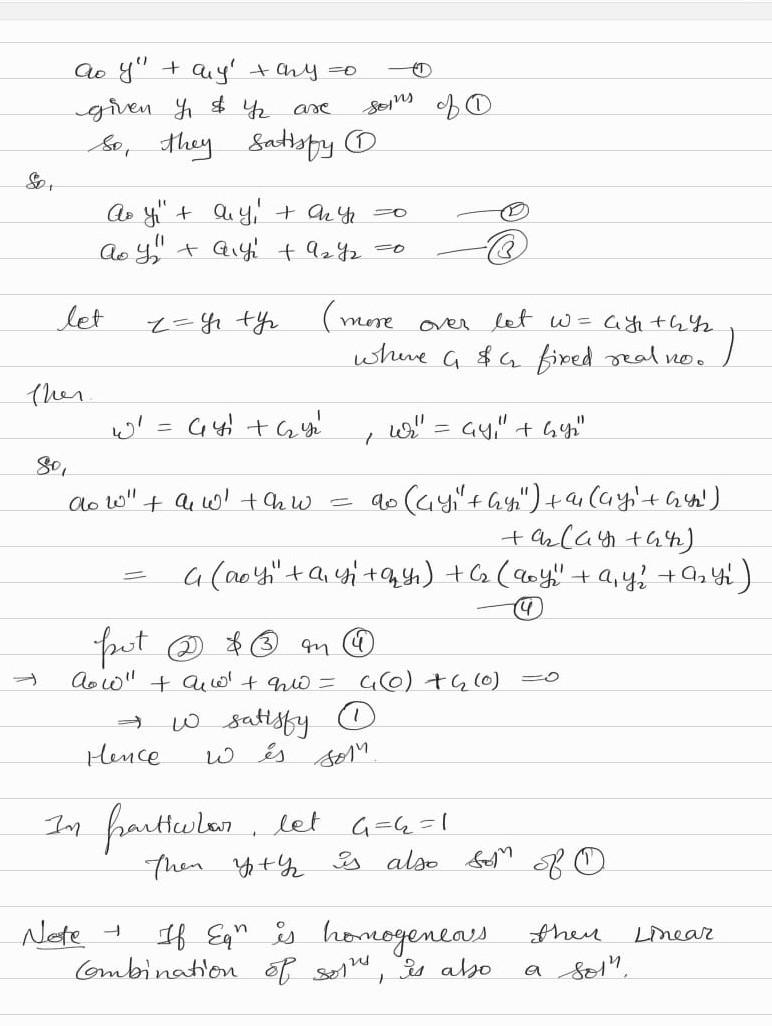 a₀ y'' + a₁y' + a₂y = 0 — ①
given y₁ & y₂ are solⁿˢ of ①
So, they satisfy ①
So,
a₀ y₁'' + a₁y₁' + a₂y₁ = 0 — ②
a₀ y₂'' + a₁y₂' + a₂y₂ = 0 — ③
let z = y₁ + y₂ (more over let w = c₁y₁ + c₂y₂,
where c₁ & c₂ fixed real no.)
Then
w' = c₁y₁' + c₂y₂' , w₂'' = c₁y₁'' + c₂y₂''
So,
a₀w'' + a₁w' + a₂w = a₀(c₁y₁'' + c₂y₂'') + a₁(c₁y₁' + c₂y₂')
+ a₂(c₁y₁ + c₂y₂)
= c₁(a₀y₁'' + a₁y₁' + a₂y₁) + c₂(a₀y₂'' + a₁y₂' + a₂y₂')
— ④
put ② & ③ in ④
⇒ a₀w'' + a₁w' + a₂w = c₁(0) + c₂(0) = 0
⇒ w satisfy ①
Hence w is solⁿ.
In particular, let c₁=c₂=1
Then y₁+y₂ is also solⁿ of ①
Note → If Eqⁿ is homogeneous then Linear
Combination of solⁿˢ, is also a solⁿ.